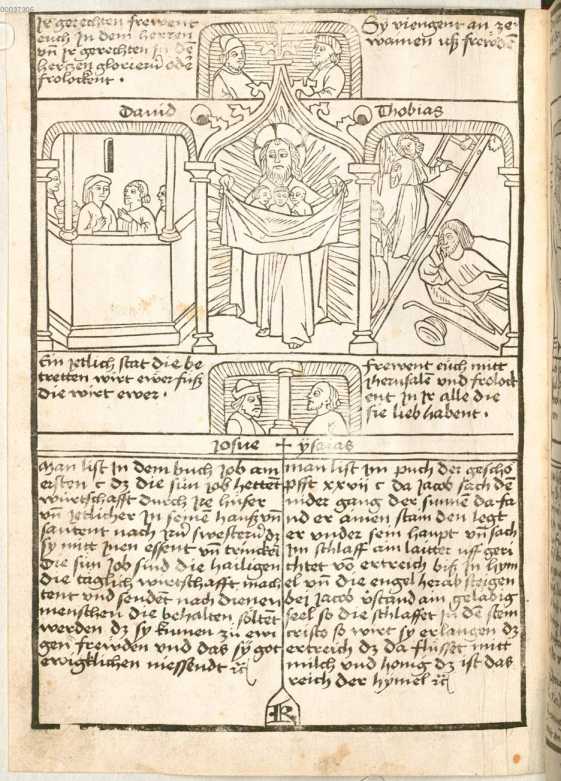 00037305
jr gerechten frewent
euch jn dem herren
vn̄ jr gerechten jn de
hertzen glorieru̅ ode̅
frolockent .
Sy viengent an ze
wainen uß frewde̅
Dauid
Thobias
Ein jetlich stat die be
tretten wirt ewer fuß
die wirt ewer .
frewent euch mitt
jherusale̅ und frolock
ent jn jr alle die
sie lieb habent .
josue
ysaias
Man list jn dem buch job am
ersten c dz die sün jobs hettent
wirtschafft durch jre hüser
vn̄ jetlicher jn seine̅ hauß vn̄
santent nach jru̅ swesteru̅ dz
sy mitt jnen essent vn̄ trincke̅t
die sün job sind die hailigen
die täglich wirtschafft mach
tent und sendet nach dienen
menschen die behalten söltent
werden dz sy kumen zu ewi
gen frewden und das sy got
ewigklichen niessendt ꝛc̄
Man list jm puch der geschö
pfft xxviij c da jacob sach den
nider gang der sunnen da fa
nd er ainen stain den legt
er under sein haupt vn̄ sach
jm schlaff ain laitter uff geri
chtet vo̅ ertreich biß jn hym
el vn̄ die engel herab steigen
bej jacob v̄stand ain gelabig
seel so die schlaffet jn de̅ stein
cristo so wirt sy erlangen dz
ertreich dz da flüsset mitt
milch und honig dz ist das
reich der hymel ꝛc̄
R